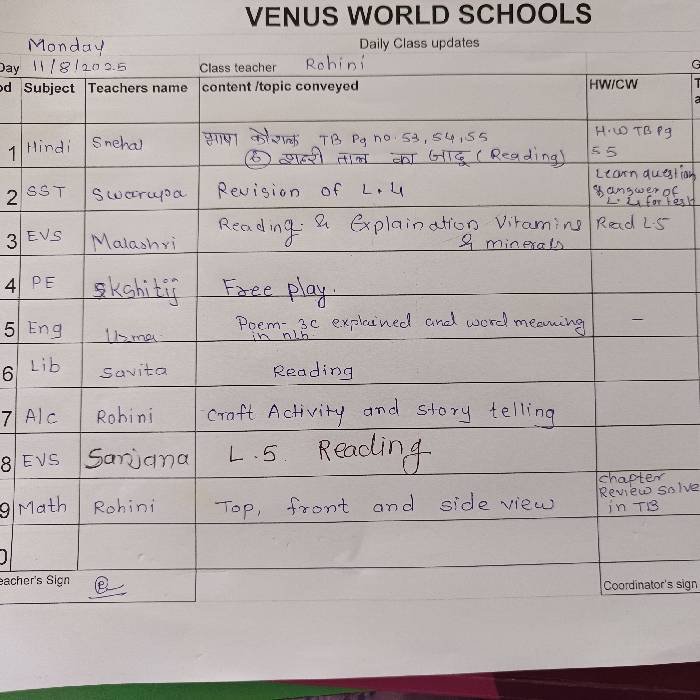 VENUS WORLD SCHOOLS
Monday
Daily Class updates
Day 11/8/2025 Class teacher Rohini
Subject Teachers name content /topic conveyed HW/CW
1 Hindi Snehal भाषा कौशल TB Pg no. 53, 54, 55 H.W TB Pg
55
(Reading)
2 SST Swarupa Revision of L.4 Learn question
& answer of
L.4 for test
3 EVS Malashri Reading & Explaination Vitamins Read L.5
& minerals
4 PE Kshitij Free play.
5 Eng Uzma Poem- 3c explained and word meaning –
in n/b.
6 Lib Savita Reading
7 A/c Rohini Craft Activity and story telling
8 EVS Sanjana L.5. Reading
9 Math Rohini Top, front and side view chapter
Review solve
in TB
Coordinator's sign